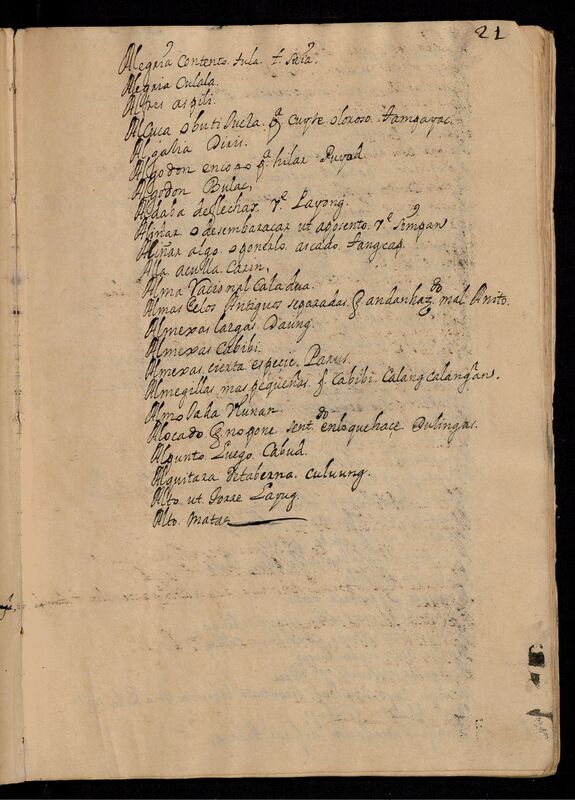 21
Alegria contento. tula. t. saia.
Alegria Culala.
Alfiles aspili.
Algalia Diris.
Algodon encopo pª hilar Puyod.
Algodon Bulac,
Aldaba de flechar. rª. Layong.
Aliñar o desembaraçar ut aposento. rª. Simpan
Aliñar algo. o ponerlo. aseado. tangcap
Alla aculla. Carin,
Alma Racional Caladua.
Almas de los Antiguos separadas. q̃ andan haz.do mal. Anito.
Almexas largas Daung.
Almexas Cabibi.
Almexas, cierta especie. Parus.
Almegillas mas pequeñas. q̃. Cabibi. Calangcalangan.
Almohada Vlunan.
Alocado. q̃ no pone. sent.do en lo que hace. Dulingas.
Al punto. Luego. Cabud.
Alquitara de taberna. culuung.
Alto ut. Torre Lapug.
Alto. Matas